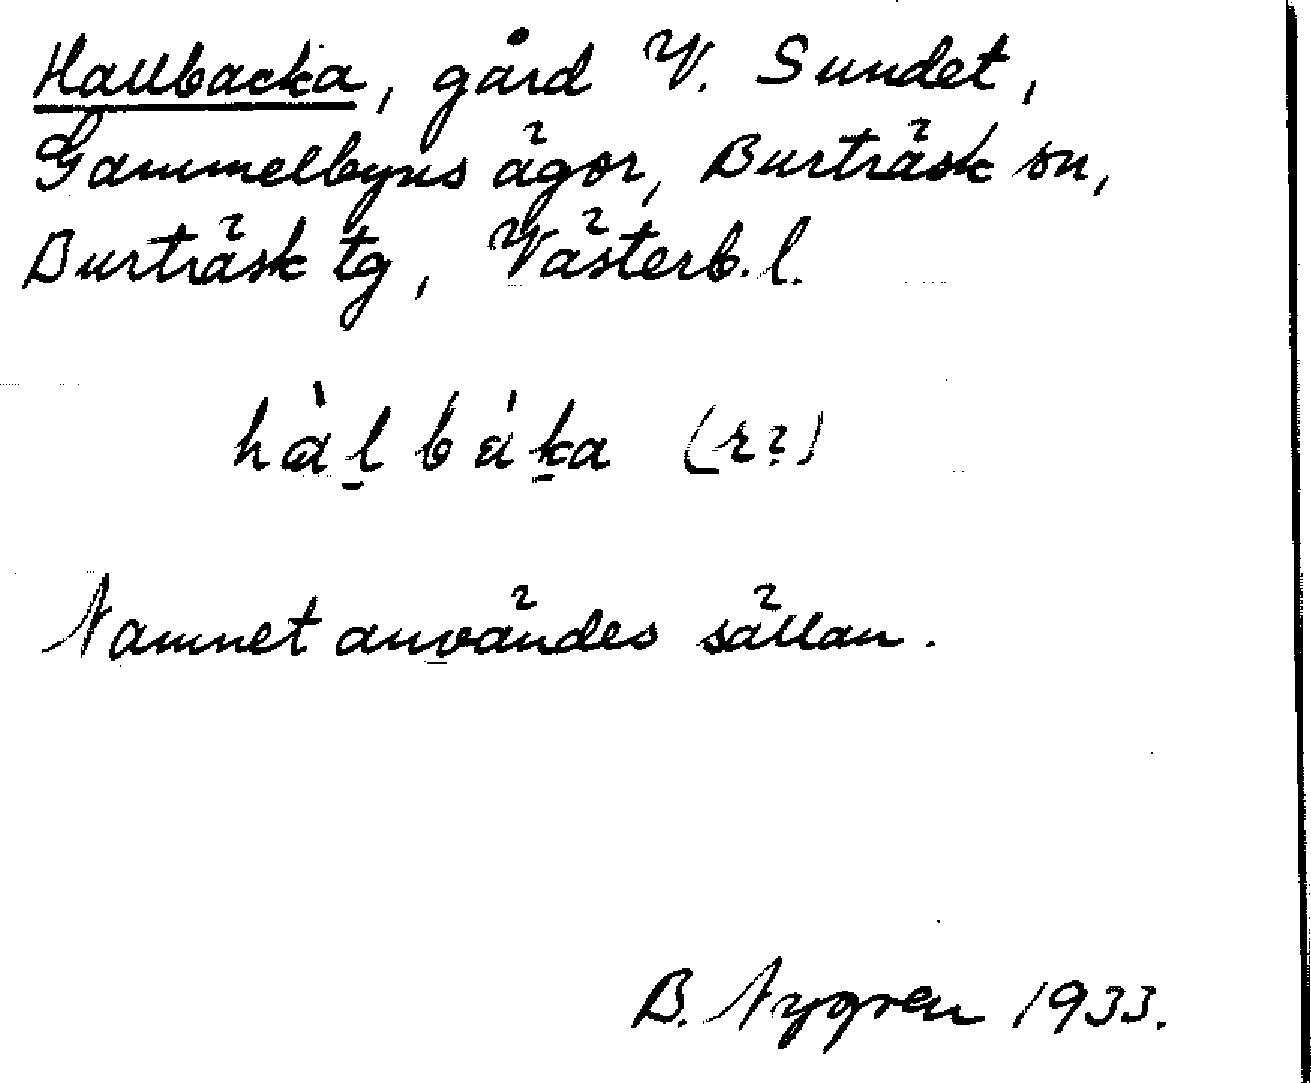 Hallbacka, gård V. Sundet,
Gammelbyns ägor, Burträsk sn,
Burträsk tg, Västerb. l.
hàl báka (r?)
Namnet användes sällan.
B. Nygren 1933.